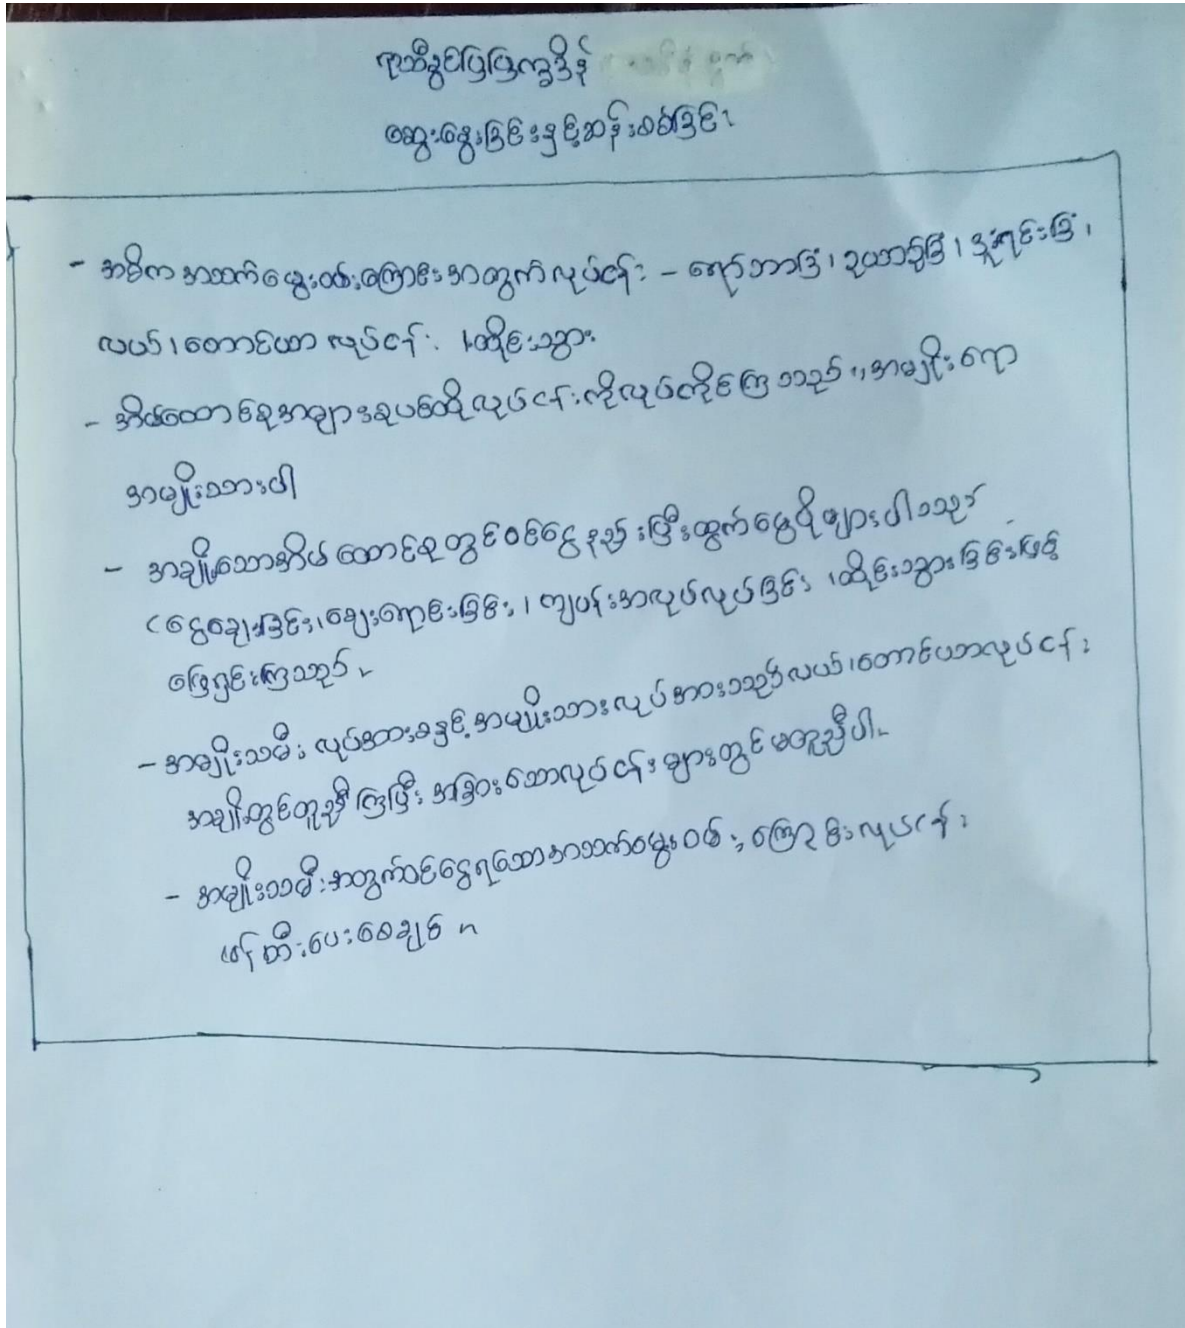 ရာသီခွင်ပြပြက္ခဒိန်
ဆွေးနွေးခြင်းနှင့်ဆန်းစစ်ခြင်း
- အဓိက အသက်မွေးဝမ်းကြောင်းအတွက်လုပ်ငန်း - ရော်ဘာခြံ၊ ဒူးရင်းခြံ၊
လယ်၊ တောင်ယာ လုပ်ငန်း ၊ထိုင်းသွား
- အိမ်ထောင်စုအများစုပင်ထိုလုပ်ငန်းကိုလုပ်ကိုင်ကြသည်။ အမျိုးရော
အမျိုးသားပါ
- အချို့သောအိမ်ထောင်စုတွင်ဝင်ငွေနည်းပြီးထွက်ငွေပိုများပါသည်
(ငွေချေးခြင်း၊ ဈေးရောင်းခြင်း၊ ကျပန်းအလုပ်လုပ်ခြင်း ၊ထိုင်းသွားခြင်းဖြင့်
ဖြေရှင်းကြသည်
- အမျိုးသမီး လုပ်အားခနှင့် အမျိုးသားလုပ်အားသည်လယ်၊တောင်ယာလုပ်ငန်း
အချို့တွင်တူညီကြပြီး အခြားသောလုပ်ငန်းများတွင်မတူညီပါ
- အမျိုးသမီးအတွက်ဝင်ငွေရသောအသက်မွေးဝမ်းကြောင်းလုပ်ငန်း
ဖန်တီးပေးစေချင်။